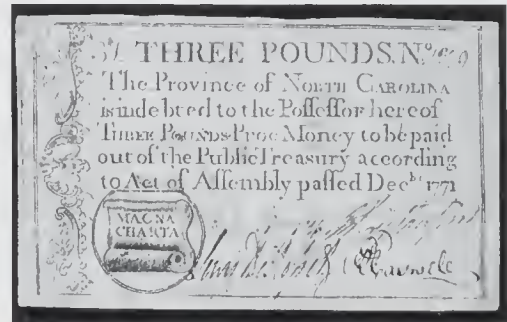 THREE POUNDS. No.
The Province of North Carolina
is indebted to the Poſſeſſor hereof
Three Pounds Proc Money to be paid
out of the Public Treasury according
to Act of Aſſembly paſſed Decbr. 1771
MAGNA
CHARTA